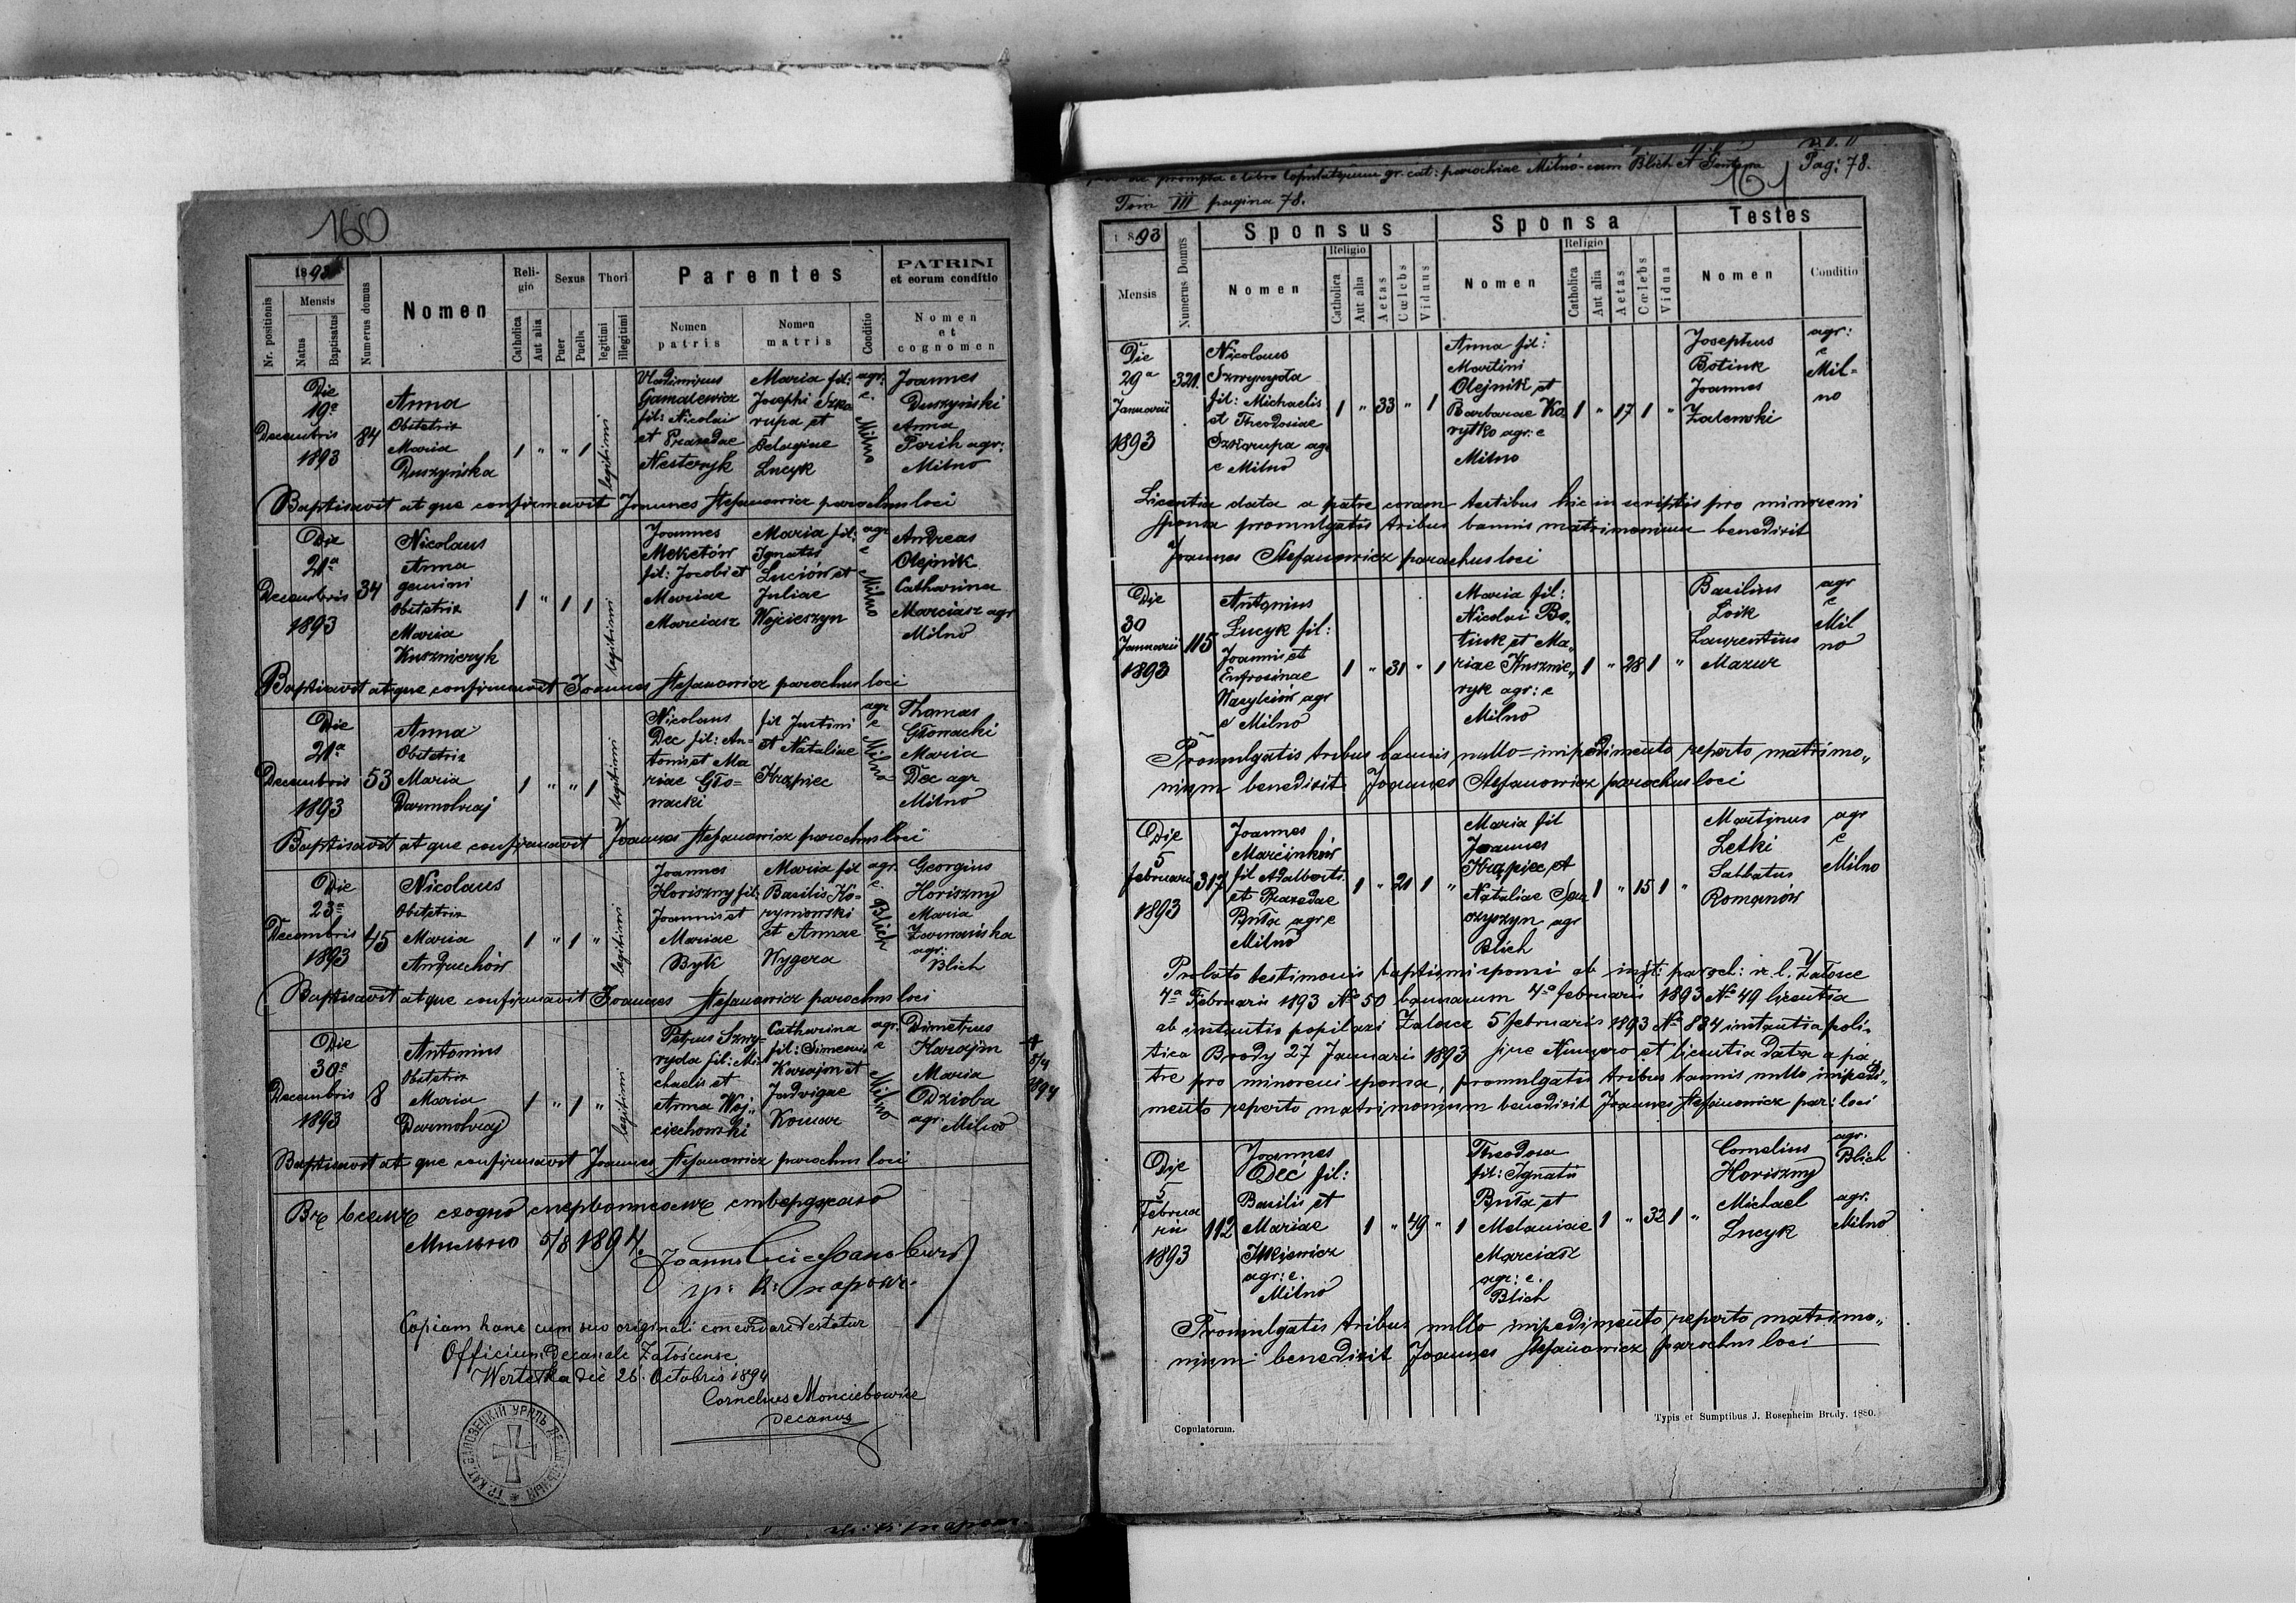 160
1893
Nr. positionis
Mensis
Natus
Baptisatus
Numerus domus
Nomen
Religio
Catholica
Aut alia
Sexus
Puer
Puella
Thori
legitimi
illegitimi
Parentes
Nomen patris
Nomen matris
Conditio
PATRINI
et eorum conditio
Nomen
et
cognomen
Die
19a
Decembris
1893
84
Anna
Obstetrix
Maria
Duszyńska
1 " " 1
legitimi
Vladimirus
Gamalewicz
fil: Nicolai
et Praxedae
Nesteryk
Maria fil:
Josephi Szka
rupa et
Pelagiae
Lucyk
agr:
e
Milno
Joannes
Duszyński
Anna
Parih agr:
Milno
Baptisavit atque confirmavit Joannes Stefanowicz parochus loci
Die
21a
Decembris
1893
34
Nicolaus
Anna
gemini
Obstetrix
Maria
Kuszneryk
1 " 1 1
legitimi
Joannes
Mokietów
fil: Jacobi et
Mariae
Marciasz
Maria fil:
Ignatii
Luciów et
Juliae
Wojcieszyn
agr
e
Milno
Andreas
Olejnik
Catharina
Marciasz agr
Milno
Baptisavit atque confirmavit Joannes Stefanowicz parochus loci
Die
21a
Decembris
1893
53
Anna
Obstetrix
Maria
Darmohraj
1 " " 1
legitimi
Nicolaus
Dec fil: An-
tonis et Ma
riae Gło-
wacki
fil Justini
et Nataliae
Krąpiec
agr
e
Milno
Thomas
Głowacki
Maria
Dec agr
Milno
Baptisavit atque confirmavit Joannes Stefanowicz parochus loci
Die
23a
Decembris
1893
45
Nicolaus
Obstetrix
Maria
Andruchów
1 " 1 "
legitimi
Joannes
Horiszny fil:
Joannis et
Mariae
Byk
Maria fil
Basilis Ko-
rynowski
et Annae
Wygera
agr.
e
Blich
Georgius
Horiszny
Maria
Zarwańska
agr:
Blich
Baptisavit atque confirmavit Joannes Stefanowicz parochus loci
Die
30a
Decembris
1893
8
Antonius
Obstetrix
Maria
Darmohraj
1 " 1 "
legitimi
Petrus Szwy-
ryda fil: Mi-
chaelis et
Anna Woj-
ciechowski
Catharina
fil: Simeonis
Karajm et
Jadvigae
Komar
agr.
e
Milno
Dimetrius
Karajm
Maria
Odzioba
agr. Milno
1894
Baptisavit atque confirmavit Joannes Stefanowicz parochus loci
Мильно 5/8 1894.
Copiam hanc cum suo originali concordare testatur
Officium Decanale Załoscense
Wertelka die 26. Octobris 1894
Cornelius Monciebowicz
Decanus
Pag: 78.
161
prompta e libro Copulatorum gr. cat: parochiae Milno cum Blich et Fontana
Tom III pagina 78.
1893
Mensis
Numerus Domus
Sponsus
Nomen
Religio
Catholica
Aut alia
Aetas
Cœlebs
Viduus
Sponsa
Nomen
Religio
Catholica
Aut alia
Aetas
Cœlebs
Vidua
Testes
Nomen
Conditio
Die
29a
Januarii
1893
321.
Nicolaus
Szwyryda
fil: Michaelis
et Theodosiae
Szkarupa agr
e Milno
1 " 33 " 1
Anna fil:
Martini
Olejnik et
Barbarae Ko
rytko agr: e
Milno
1 " 17 1 "
Josephus
Botiuk
Joannes
Zalewski
agr:
e
Mil-
no
Licentia data a patre coram testibus hic inscriptis pro minoreni
sponsa promulgatis tribus bannis matrimonium benedixit
Joannes Stefanowicz parochus loci
Die
30
Januarii
1893
115
Antonius
Lucyk fil:
Joannis et
Eufrosinae
Wasylciów agr
e Milno
1 " 31 " 1
Maria fil:
Nicolai Bo-
tiuk et Ma-
riae Kusznie-
ryk agr: e
Milno
1 " 28 1 "
Basilius
Loik
Laurentius
Mazur
agr
e
Mil
no
Promulgatis tribus bannis nullo impedimento reperto matrimo-
nium benedixit Joannes Stefanowicz parochus loci
Die
5
februarii
1893
317
Joannes
Marcinków
fil Adalberti
et Praxedae
Buta agr e
Milno
1 " 21 1 "
Maria fil
Joannes
Krąpiec et
Nataliae
agr
Blich
1 " 15 1 "
Martinus
Letki
Sabbatus
Romanów
agr
e
Milno
Prolato testimonio baptismi sponsi ab paroch: r. l. Załosce
4a Februarii 1893 No 50 bannarum 4a februarii 1893 No 49 licentia
ab instantia Załosce 5 februaris 1893 No 884 instantia poli-
tica Brody 27 Januaris 1893 sine Numero et licentia data a pa-
tre pro minoreni sponsa, promulgatis tribus bannis nullo impedi-
mento reperto matrimonium benedixit Joannes Stefanowicz par: loci
Die
5
Februa
rii
1893
112
Joannes
Deć fil:
Basilis et
Mariae
Illkiewicz
agr: e.
Milno
1 " 49 " 1
Theodosa
fil: Ignatii
Buta et
Melaniae
Marciasz
agr: e.
Blich
1 " 32 1 "
Cornelius
Horiszny
Michael
Lucyk
agr.
Blich
agr.
Milno
Promulgatis tribus nullo impedimento reperto matrimo-
nium benedixit Joannes Stefanowicz parochus loci
Copulatorum.
Typis et Sumptibus J. Rosenheim Brody. 1880.